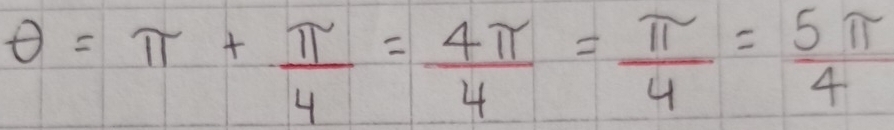 θ = π + π/4 = 4π/4 = π/4 = 5π/4